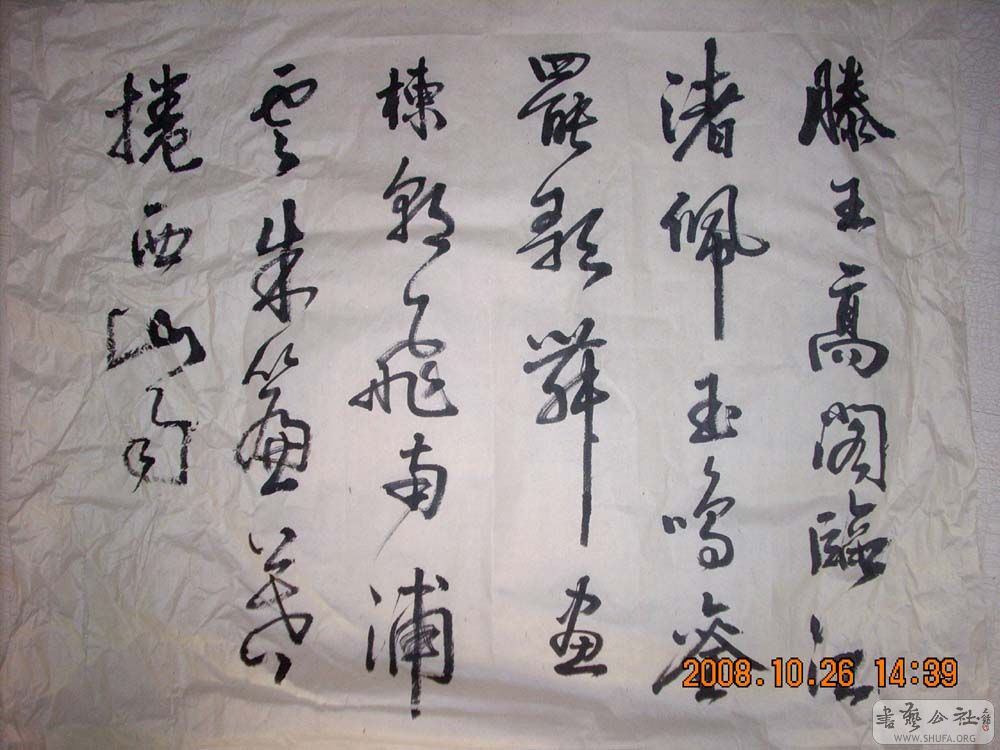 滕王高阁臨江
渚佩玉鸣鸾
罷歌舞画
棟朝飛南浦
雲朱簾暮
捲西山雨
2008.10.26 14:39
書藝公社
WWW.SHUFA.ORG